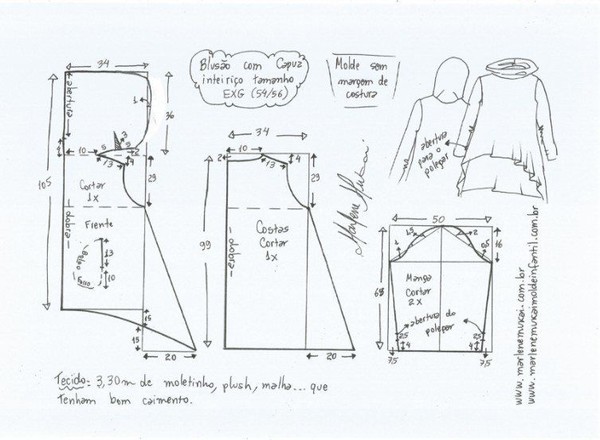 Blusão com Capuz
inteiriço tamanho
EXG (54/56)
Molde sem
margem de
costura
34
abertura
1
36
3
5
5
2
2
10
13
4
29
105
Cortar
1x
dobra
Frente
Bolso
13
10
Fundo
15
15
20
34
2
10
13
4
29
99
Costas
Cortar
1x
dobra
20
Marlene Mukai
abertura
para o
polegar
50
1,5
2
1
0,5
16
68
Manga
Cortar
2x
abertura do
polegar
2,5
4
2,5
4
7,5
7,5
www.marlenemukai.com.br
www.marlenemukaimoldeinfantil.com.br
Tecido: 3,30m de moletinho, plush, malha... que
Tenham bom caimento.